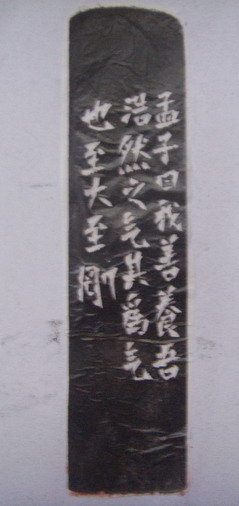 孟子曰我善養吾
浩然之气其爲气
也至大至剛